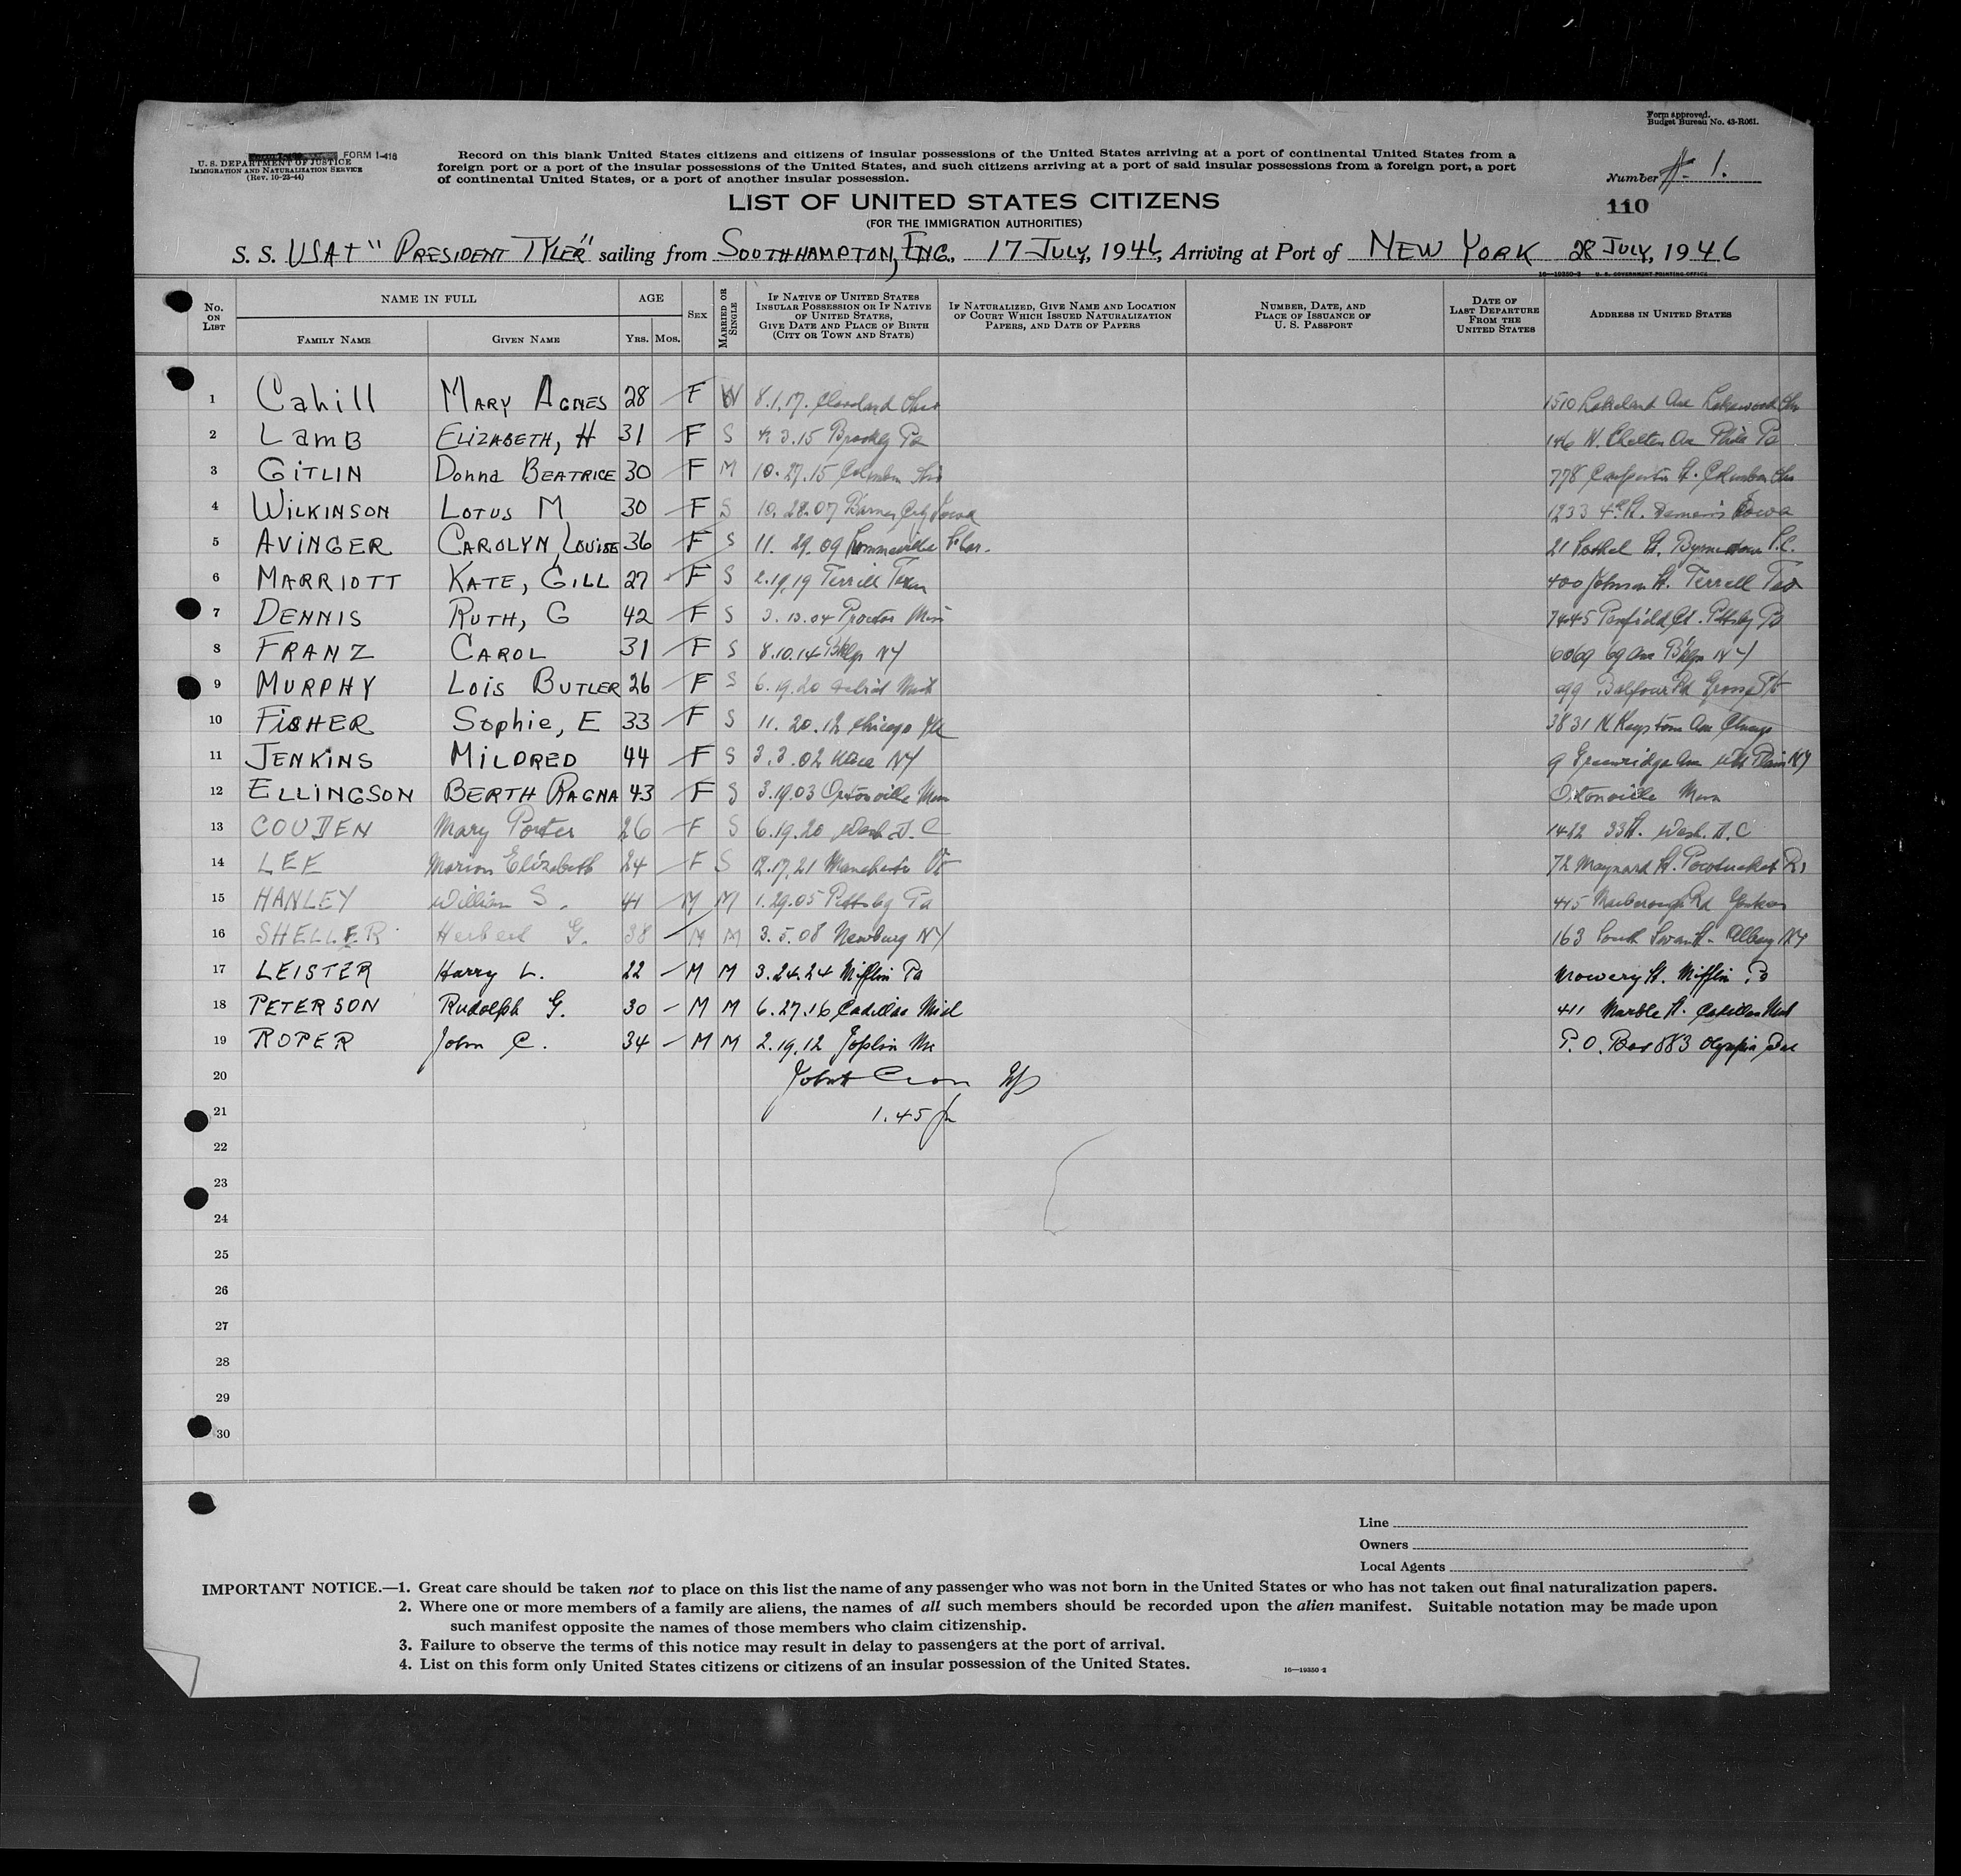 Form approved.
Budget Bureau No. 43-R061.
FORM I-416
U. S. DEPARTMENT OF JUSTICE
IMMIGRATION AND NATURALIZATION SERVICE
(Rev. 10-23-44)
Record on this blank United States citizens and citizens of insular possessions of the United States arriving at a port of continental United States from a
foreign port or a port of the insular possessions of the United States, and such citizens arriving at a port of said insular possessions from a foreign port, a port
of continental United States, or a port of another insular possession.
Number # 1.
110
LIST OF UNITED STATES CITIZENS
(FOR THE IMMIGRATION AUTHORITIES)
S. S. USAT "PRESIDENT TYLER" sailing from SOUTHHAMPTON, ENG., 17 JULY, 1946, Arriving at Port of NEW YORK 28 JULY, 1946
16—19350-2 U. S. GOVERNMENT PRINTING OFFICE
No. ON LIST
NAME IN FULL
FAMILY NAME
GIVEN NAME
AGE
YRS. MOS.
SEX
MARRIED OR SINGLE
IF NATIVE OF UNITED STATES INSULAR POSSESSION OR IF NATIVE OF UNITED STATES, GIVE DATE AND PLACE OF BIRTH (CITY OR TOWN AND STATE)
IF NATURALIZED, GIVE NAME AND LOCATION OF COURT WHICH ISSUED NATURALIZATION PAPERS, AND DATE OF PAPERS
NUMBER, DATE, AND PLACE OF ISSUANCE OF U. S. PASSPORT
DATE OF LAST DEPARTURE FROM THE UNITED STATES
ADDRESS IN UNITED STATES
1 Cahill MARY AGNES 28 F W 8.1.17. Cleveland Ohio 1510 Lakeland Ave Lakewood Ohio
2 LAMB ELIZABETH, H 31 F S 3.15 Pa 146 W. Chelten Av Phila Pa
3 GITLIN Donna BEATRICE 30 F M 10.27.15 Columbus Ohio 778 St. Columbus Ohio
4 WILKINSON LOTUS M 30 F S 10.28.07 Barnes City Iowa 1233 4th St. Iowa
5 AVINGER CAROLYN, LOUISE 36 F S 11. 29. 09 21 St. S.C.
6 MARRIOTT KATE, GILL 27 F S 2.19,19 Terrill Texas 400 Johnson St. Terrell Tex
7 DENNIS RUTH, G 42 F S 3. 13.04 Proctor Minn 7445 Penfield Ct. Pittsbg Pa
8 FRANZ CAROL 31 F S 8.10.14 Bklyn NY 6069 69 Ave Bklyn NY
9 MURPHY LOIS BUTLER 26 F S 6.19.20 Detroit Mich 99 Balfour Rd Grosse Pt
10 FISHER Sophie, E 33 F S 11. 20. 12 Chicago Ill 3831 N Keystone Ave Chicago
11 JENKINS MILDRED 44 F S 3.3.02 NY 9 Greenridge Ave Wht Plains NY
12 ELLINGSON BERTH RAGNA 43 F S 3.19.03 Ortonville Minn Ortonville Minn
13 COUDEN Mary Porter 26 F S 6.19.20 Wash. D.C 33 St. Wash. D.C
14 LEE Marion Elizabeth 24 F S 12.17.21 Manchester Vt 72 Maynard St. Pawtucket RI
15 HANLEY William S. 41 M M 1.29.05 Pittsbg Pa 445 Rd Yonkers
16 SHELLER Herbert G. 38 M M 3.5.08 Newburg NY 163 South Swan St. Albany NY
17 LEISTER Harry L. 22 M M 3.24.24 Mifflin Pa Mowery St. Mifflin Pa
18 PETERSON Rudolph G. 30 M M 6.27.16 Cadillac Mich 411 Marble St. Cadillac Mich
19 ROPER John C. 34 M M 2.19.12 Joplin Mo P.O. Box 883 Olympia
20
21 1.45
22
23
24
25
26
27
28
29
30
Line
Owners
Local Agents
IMPORTANT NOTICE.—1. Great care should be taken not to place on this list the name of any passenger who was not born in the United States or who has not taken out final naturalization papers.
2. Where one or more members of a family are aliens, the names of all such members should be recorded upon the alien manifest. Suitable notation may be made upon
such manifest opposite the names of those members who claim citizenship.
3. Failure to observe the terms of this notice may result in delay to passengers at the port of arrival.
4. List on this form only United States citizens or citizens of an insular possession of the United States.
16—19350-2